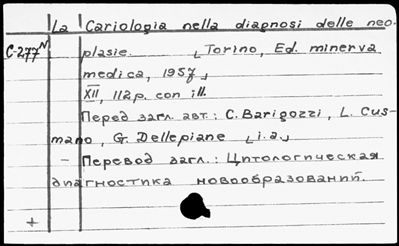 La Cariologia nella diagnosi delle neo-
C-277N plasie. [Torino, Ed. minerva
medica, 1957]
XII, 112p. con ill.
Перед загл. авт.: C. Barigozzi, L. Cus-
mano, G. Dellepiane [i.a.]
- Перевод загл.: Цитологическая
диагностика новообразований.
+